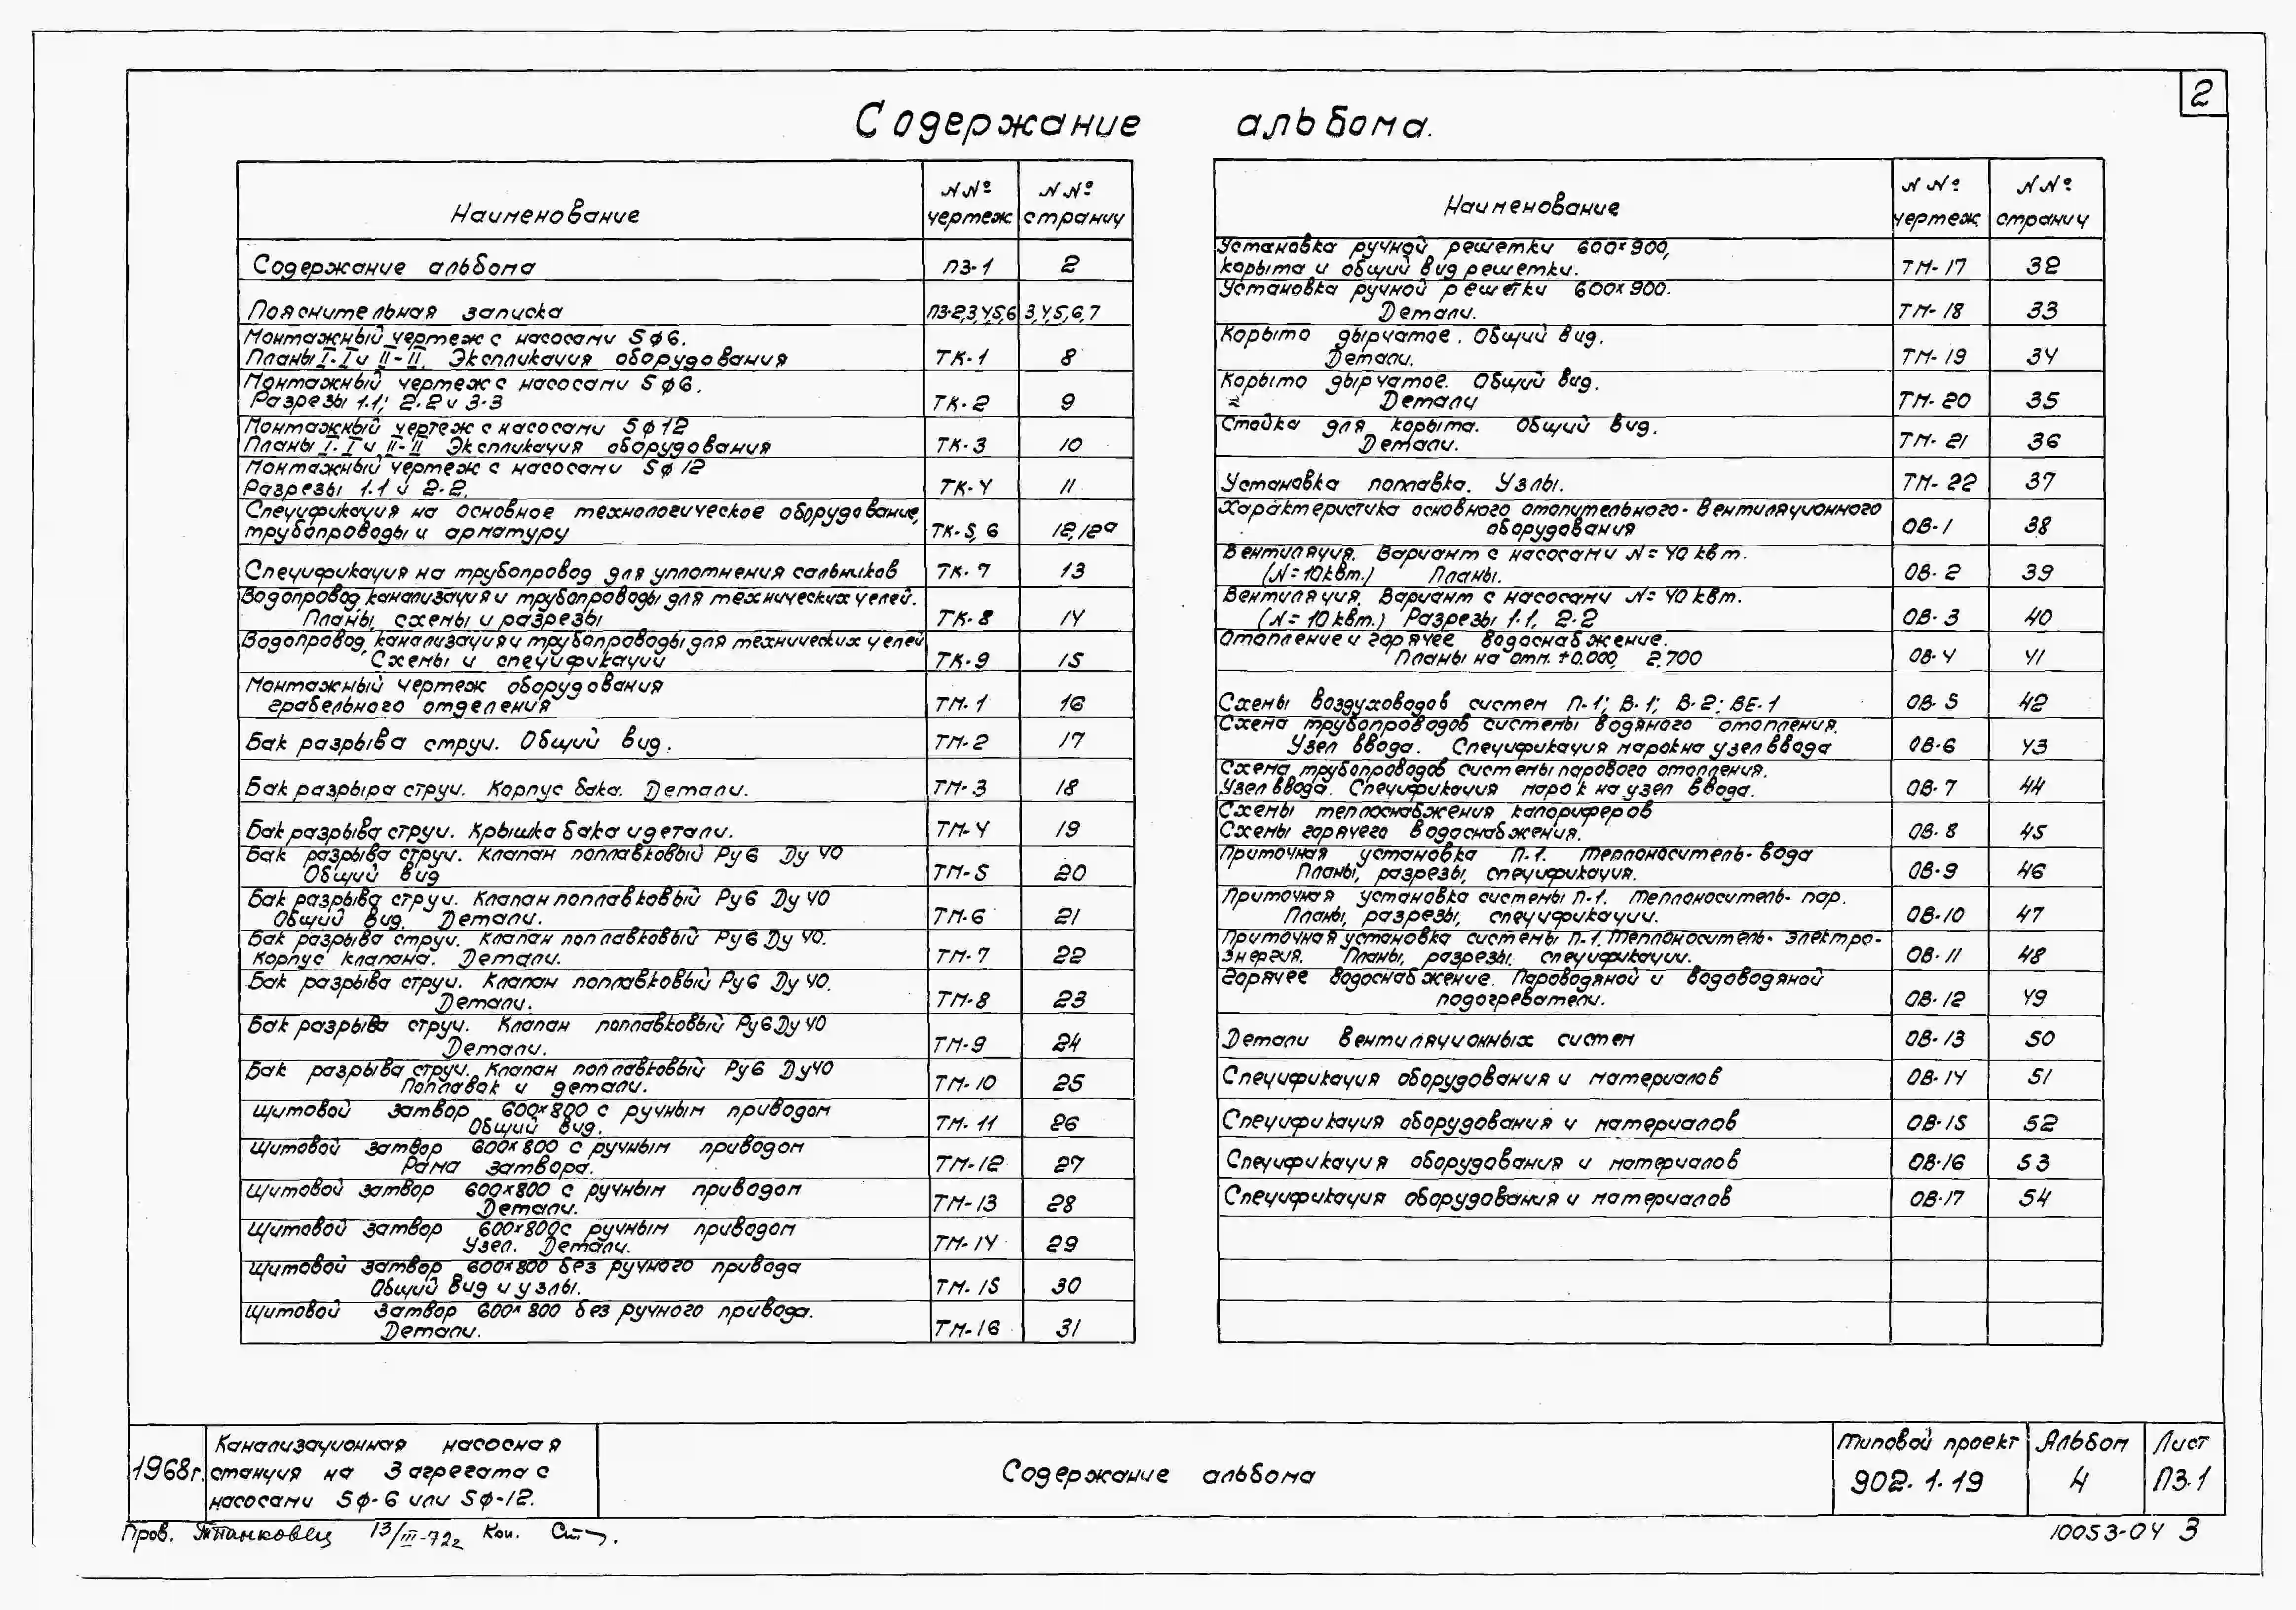 2
Содержание альбома.
Наименование
NN° чертеж
NN° страниц
Содержание альбома ПЗ-1 2
Пояснительная записка ПЗ-2,3,4,5,6 3,4,5,6,7
Монтажный чертеж с насосами 5ф6.
Планы I-I и II-II. Экспликация оборудования ТК-1 8
Монтажный чертеж с насосами 5ф6.
Разрезы 1-1; 2-2 и 3-3 ТК-2 9
Монтажный чертеж с насосами 5ф12
Планы I-I и II-II Экспликация оборудования ТК-3 10
Монтажный чертеж с насосами 5ф12
Разрезы 1-1 и 2-2. ТК-4 11
Спецификация на основное технологическое оборудование,
трубопроводы и арматуру ТК-5,6 12,12а
Спецификация на трубопровод для уплотнения сальников ТК-7 13
Водопровод, канализация и трубопроводы для технических целей.
Планы, схемы и разрезы ТК-8 14
Водопровод, канализация и трубопроводы для технических целей
Схемы и спецификации ТК-9 15
Монтажный чертеж оборудования
грабельного отделения ТМ-1 16
Бак разрыва струи. Общий вид. ТМ-2 17
Бак разрыра струи. Корпус бака. Детали. ТМ-3 18
Бак разрыва струи. Крышка бака и детали. ТМ-4 19
Бак разрыва струи. Клапан поплавковый Ру6 Ду 40
Общий вид ТМ-5 20
Бак разрыва струи. Клапан поплавковый Ру6 Ду 40
Общий вид. Детали. ТМ-6 21
Бак разрыва струи. Клапан поплавковый Ру6 Ду 40.
Корпус клапана. Детали. ТМ-7 22
Бак разрыва струи. Клапан поплавковый Ру6 Ду 40.
Детали. ТМ-8 23
Бак разрыва струи. Клапан поплавковый Ру6 Ду 40
Детали. ТМ-9 24
Бак разрыва струи. Клапан поплавковый Ру6 Ду40
Поплавок и детали. ТМ-10 25
Щитовой затвор 600×800 с ручным приводом
Общий вид. ТМ-11 26
Щитовой затвор 600×800 с ручным приводом
Рама затвора. ТМ-12 27
Щитовой затвор 600×800 с ручным приводом
Детали. ТМ-13 28
Щитовой затвор 600×800 с ручным приводом
Узел. Детали. ТМ-14 29
Щитовой затвор 600×800 без ручного привода
Общий вид и узлы. ТМ-15 30
Щитовой затвор 600×800 без ручного привода.
Детали. ТМ-16 31
Наименование
NN° чертеж
NN° страниц
Установка ручной решетки 600×900,
корыта и общий вид решетки. ТМ-17 32
Установка ручной решетки 600×900.
Детали. ТМ-18 33
Корыто дырчатое. Общий вид.
Детали. ТМ-19 34
Корыто дырчатое. Общий вид.
Детали ТМ-20 35
Стойка для корыта. Общий вид.
Детали. ТМ-21 36
Установка поплавка. Узлы. ТМ-22 37
Характеристика основного отопительного-вентиляционного
оборудования ОВ-1 38
Вентиляция. Вариант с насосами N=40 квт.
(N=10квт.) Планы. ОВ-2 39
Вентиляция. Вариант с насосами N=40 квт.
(N=10 квт.) Разрезы 1-1, 2-2 ОВ-3 40
Отопление и горячее водоснабжение.
Планы на отм. ±0.000, 2.700 ОВ-4 41
Схемы воздуховодов систем П-1; В-1; В-2; ВЕ-1 ОВ-5 42
Схема трубопроводов системы водяного отопления.
Узел ввода. Спецификация марок на узел ввода ОВ-6 43
Схема трубопроводов системы парового отопления.
Узел ввода. Спецификация марок на узел ввода. ОВ-7 44
Схемы теплоснабжения калориферов
Схемы горячего водоснабжения. ОВ-8 45
Приточная установка П-1. Теплоноситель-вода
Планы, разрезы, спецификация. ОВ-9 46
Приточная установка системы П-1. Теплоноситель-пар.
Планы, разрезы, спецификации. ОВ-10 47
Приточная установка системы П-1. Теплоноситель-электро-
энергия. Планы, разрезы, спецификации. ОВ-11 48
Горячее водоснабжение. Пароводяной и водоводяной
подогреватели. ОВ-12 49
Детали вентиляционных систем ОВ-13 50
Спецификация оборудования и материалов ОВ-14 51
Спецификация оборудования и материалов ОВ-15 52
Спецификация оборудования и материалов ОВ-16 53
Спецификация оборудования и материалов ОВ-17 54
1968г.
Канализационная насосная
станция на 3 агрегата с
насосами 5ф-6 или 5ф-12.
Содержание альбома
Типовой проект
902-1-19
Альбом
4
Лист
ПЗ-1
Пров. 13/III-72г Коп.
10053-04 3